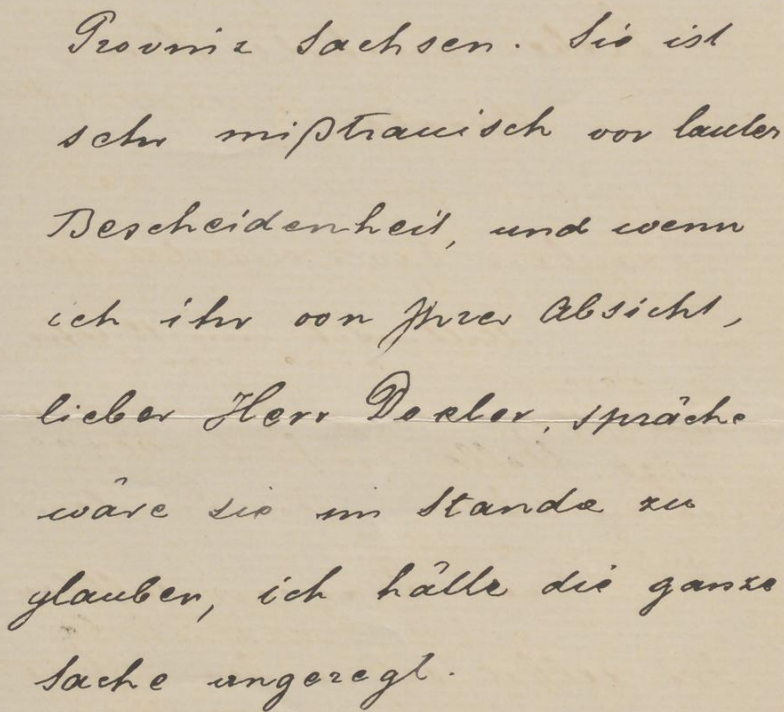 Provinz Sachsen. Sie ist
sehr mißtrauisch vor lauter
Bescheidenheit, und wenn
ich ihr von Ihrer Absicht,
lieber Herr Doktor, spräche
wäre sie im Stande zu
glauben, ich hätte die ganze
Sache angeregt.